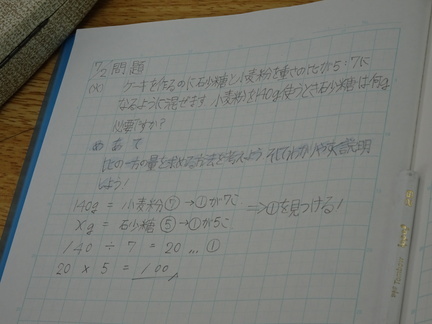 7/2 問題
ケーキを作るのに砂糖と小麦粉を重さの比が5:7に
なるように混ぜます 小麦粉を140g使うとき砂糖は何g
必要ですか?
めあて
比の一方の量を求める方法を考えよう そしてわかりやすく説明
しよう!
140g = 小麦粉⑦ →①が7こ
xg = 砂糖 ⑤ →①が5こ
⇒①を見つける!
140 ÷ 7 = 20 … ①
20 × 5 = 100